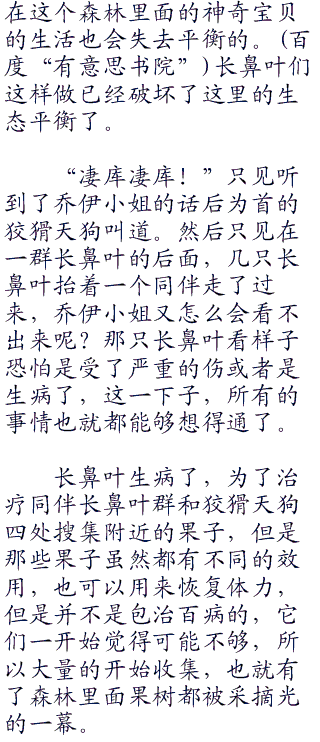 在这个森林里面的神奇宝贝
的生活也会失去平衡的。(百
度“有意思书院”)长鼻叶们
这样做已经破坏了这里的生
态平衡了。
“凄库凄库！”只见听
到了乔伊小姐的话后为首的
狡猾天狗叫道。然后只见在
一群长鼻叶的后面，几只长
鼻叶抬着一个同伴走了过
来，乔伊小姐又怎么会看不
出来呢？那只长鼻叶看样子
恐怕是受了严重的伤或者是
生病了，这一下子，所有的
事情也就都能够想得通了。
长鼻叶生病了，为了治
疗同伴长鼻叶群和狡猾天狗
四处搜集附近的果子，但是
那些果子虽然都有不同的效
用，也可以用来恢复体力，
但是并不是包治百病的，它
们一开始觉得可能不够，所
以大量的开始收集，也就有
了森林里面果树都被采摘光
的一幕。